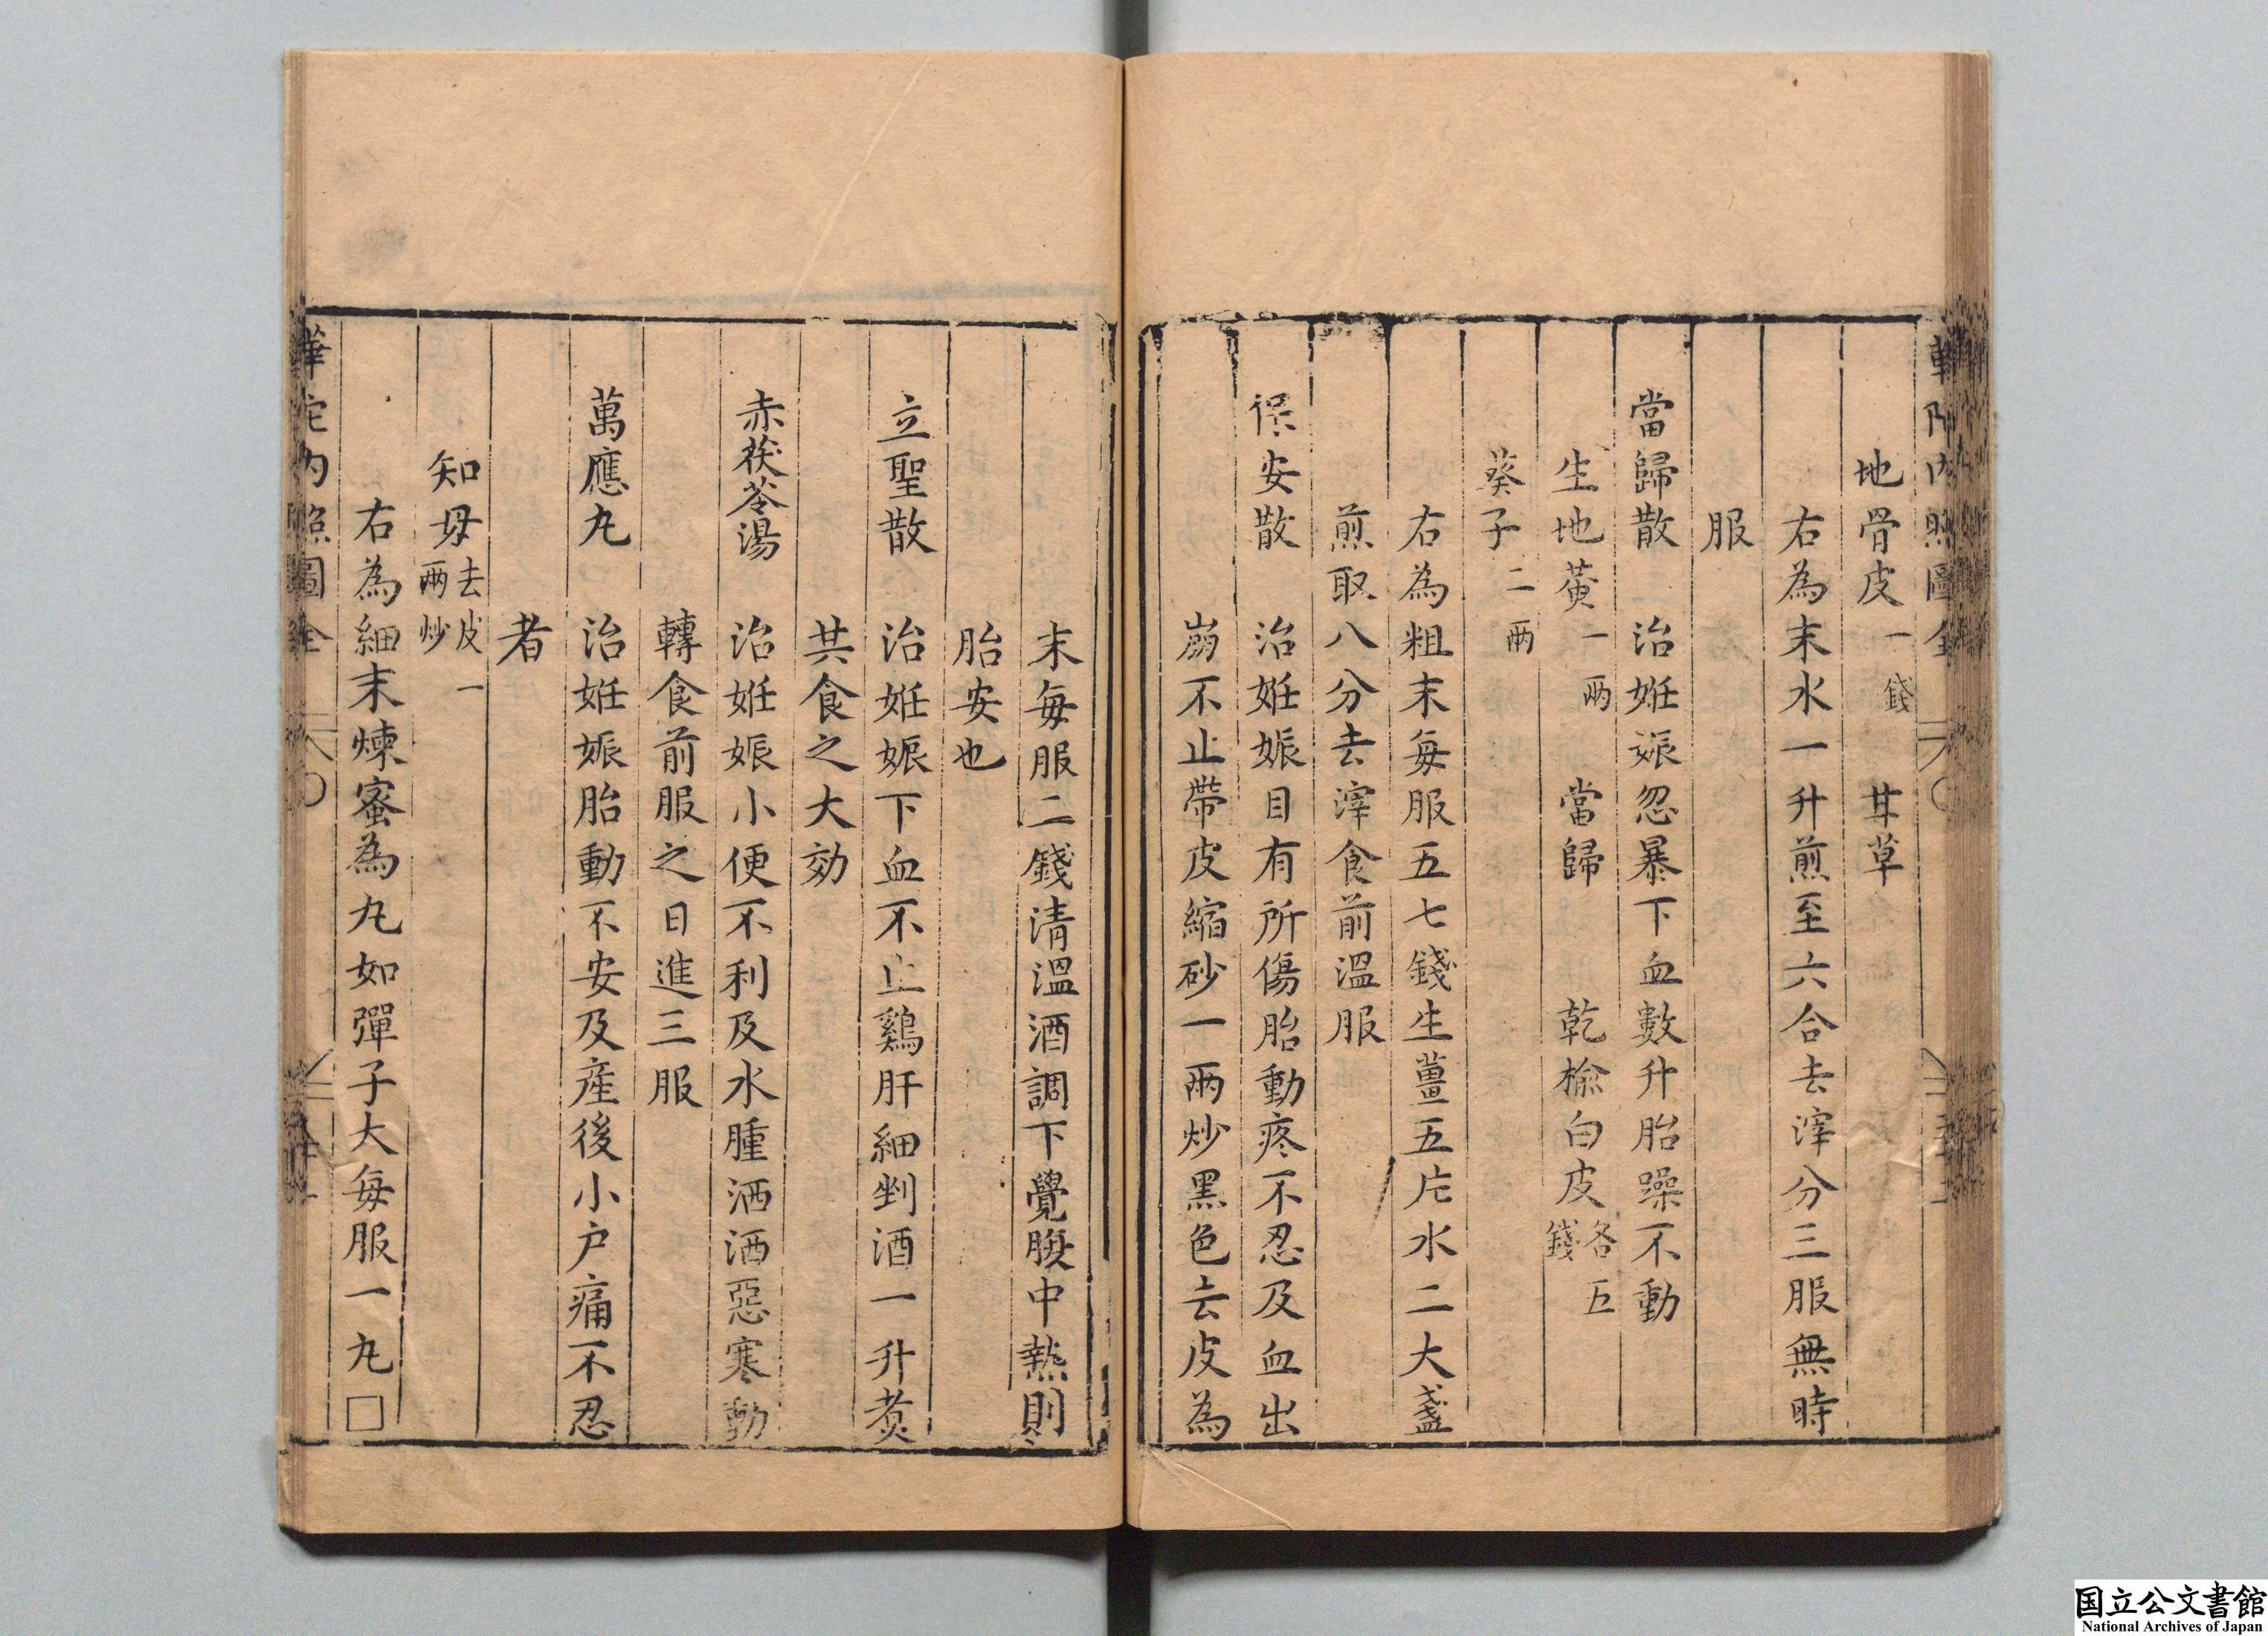 地骨皮一錢 甘草
右為末水一升煎至六合去滓分三服無時
服
當歸散 治姙娠忽暴下血數升胎躁不動
生地黃一兩 當歸 乾榆白皮各五錢
葵子二兩
右為粗末每服五七錢生薑五片水二大盞
煎取八分去滓食前溫服
保安散 治姙娠目有所傷胎動疼不忍及血出
崩不止帶皮縮砂一兩炒黑色去皮為
末每服二錢清溫酒調下覺腹中熱則
胎安也
立聖散 治姙娠下血不止鷄肝細剉酒一升煮
共食之大効
赤茯苓湯 治姙娠小便不利及水腫洒洒惡寒動
轉食前服之日進三服
萬應丸 治姙娠胎動不安及産後小户痛不忍
者
知母去皮一兩炒
右為細末煉蜜為丸如彈子大每服一丸□
華佗內照圖全
国立公文書館
National Archives of Japan